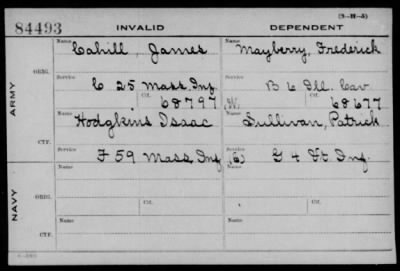 (3-H-5)
84493 INVALID DEPENDENT
Name Cahill, James Name Mayberry, Frederick
ORIG.
Service C 25 Mass Inf. Service B 6 Ill. Cav
Ctf. 68797 (W.) Ctf. 68677
ARMY
Name Hodgkins Isaac Name Sullivan, Patrick
CTF.
Service F 59 Mass Inf Service (C) G 4 Inf.
Name Name
ORIG.
Ctf. Ctf.
NAVY
Name Name
CTF.